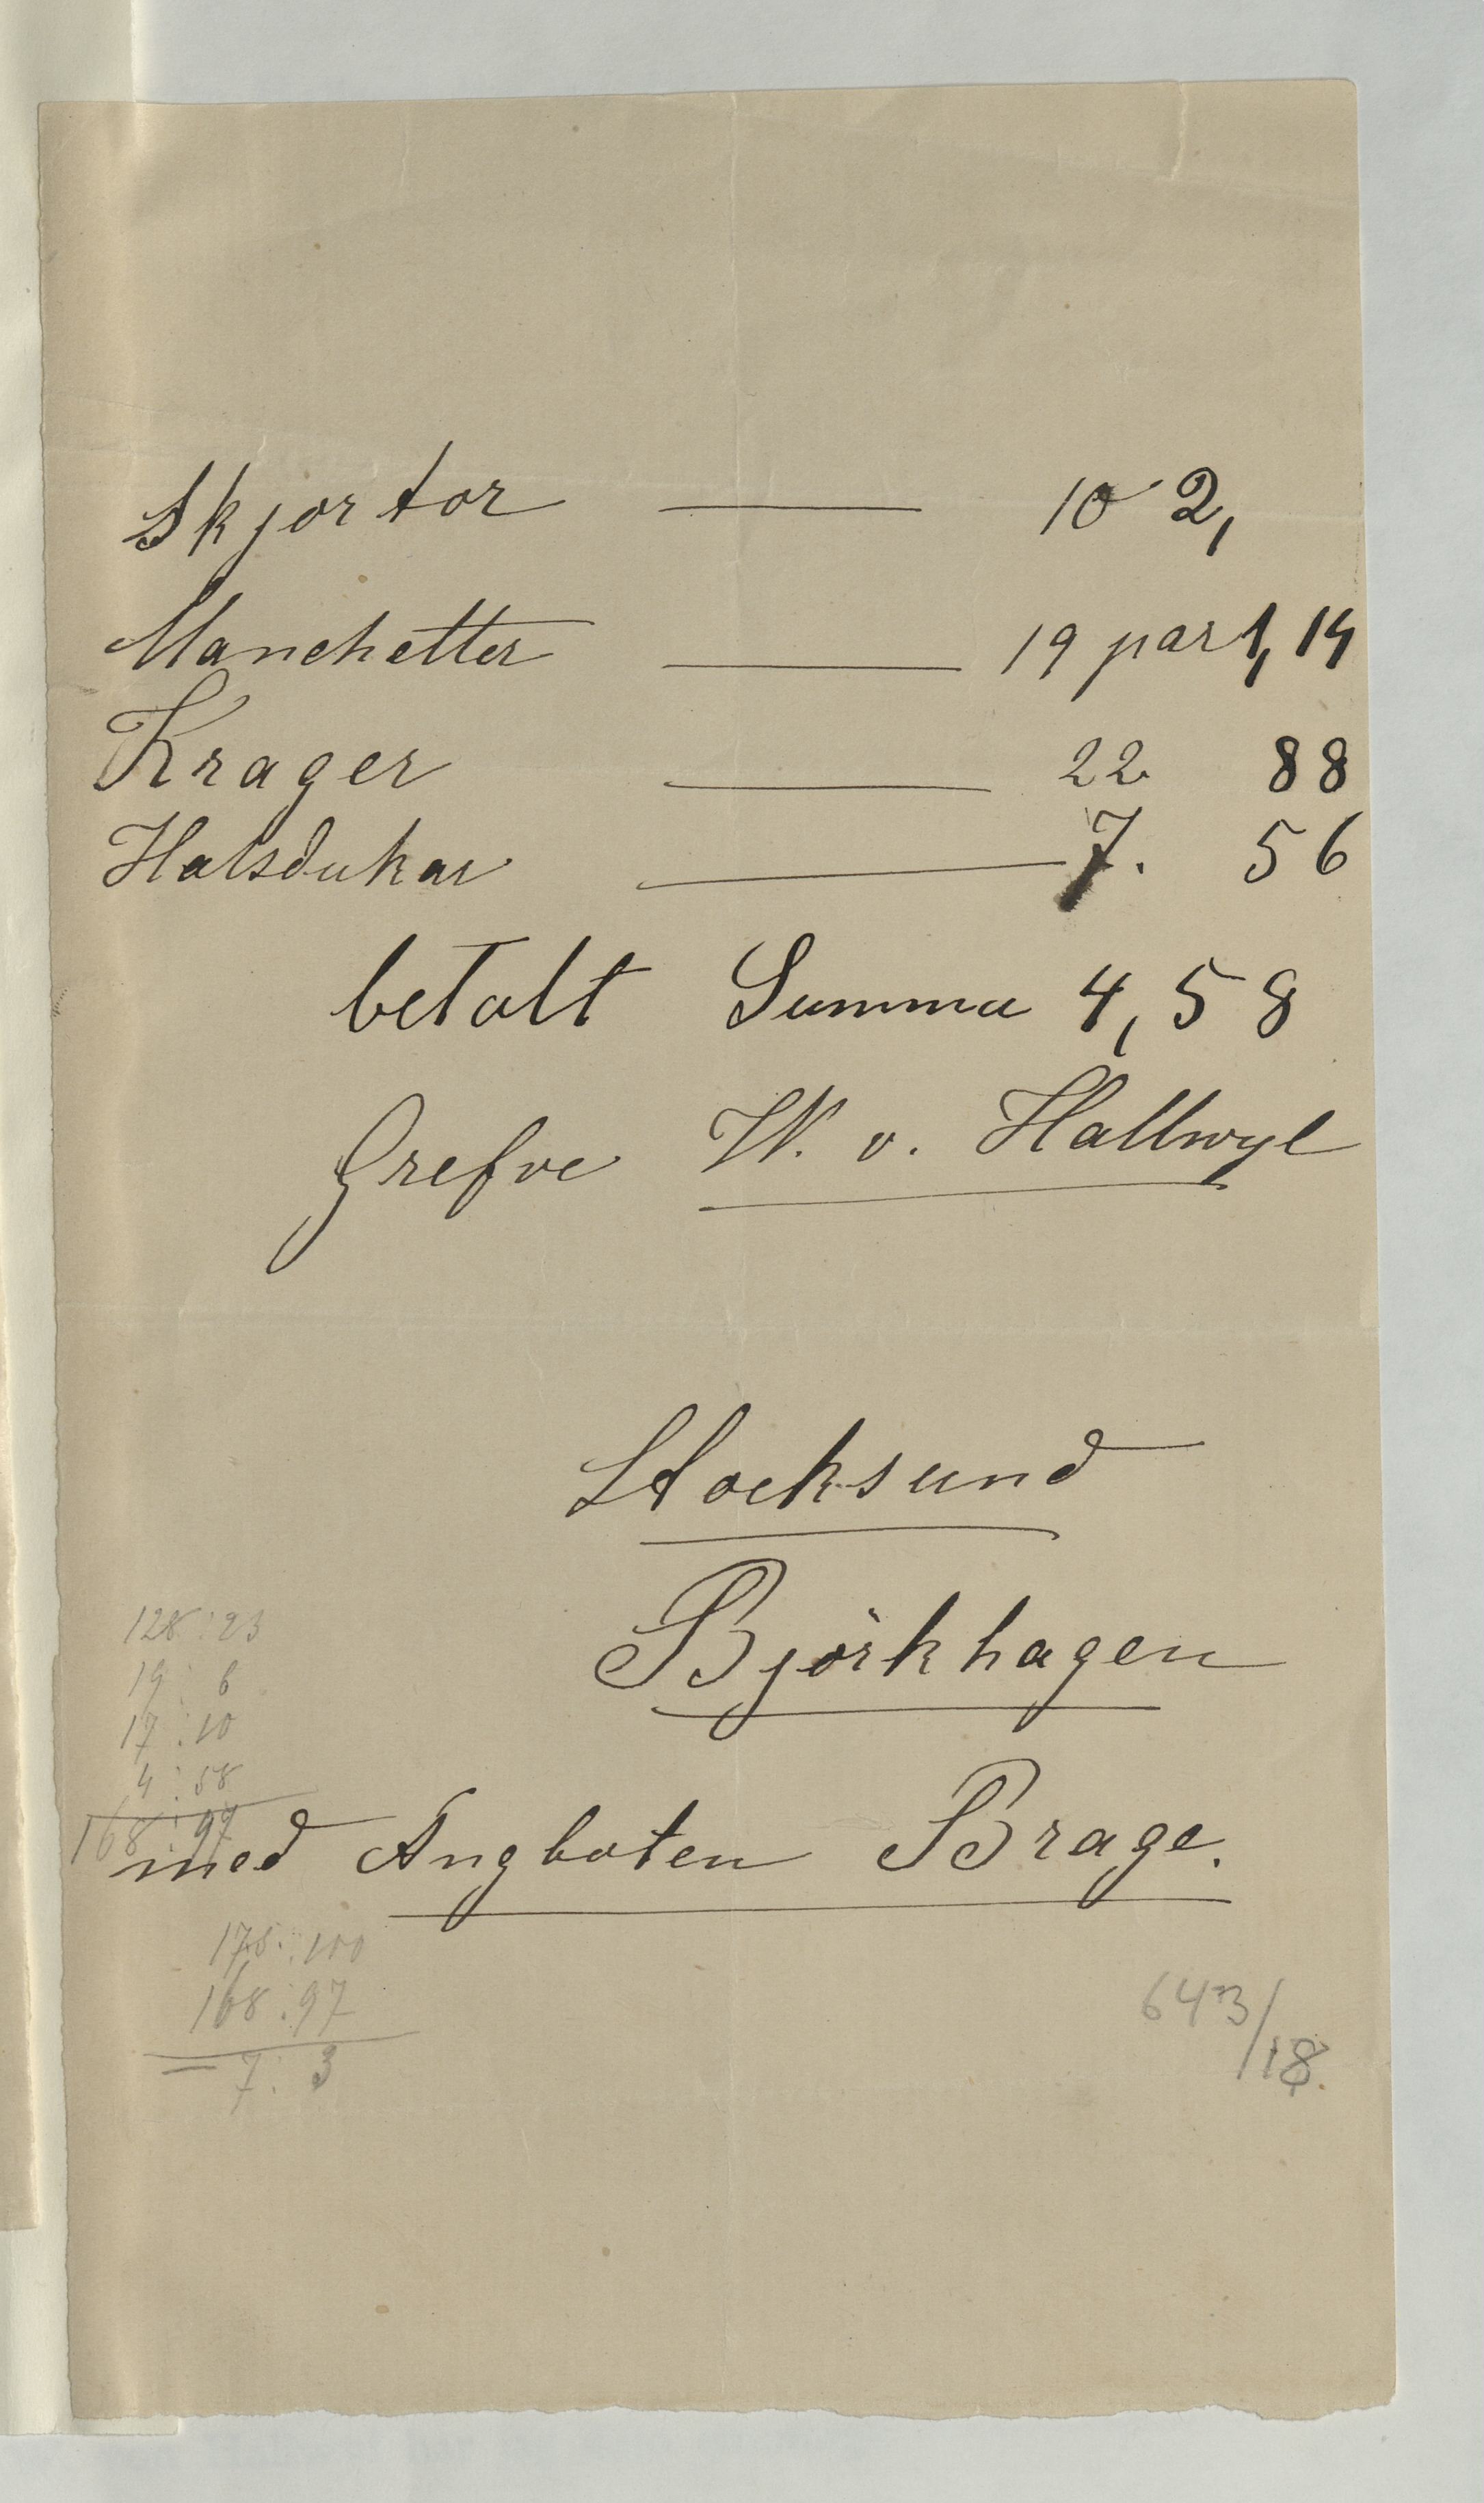 Skjortor — 10 2,
Manchetter — 19 par 1,14
Krager — 22 88
Halsdukar — 7. 56
betalt Summa 4,58
Grefve W. v. Hallwyl
Stocksund
Björkhagen
128:23
19:6
17:10
4:58
168:97
med Ångboten Brage.
175:100
168:97
= 7:3
643/18.